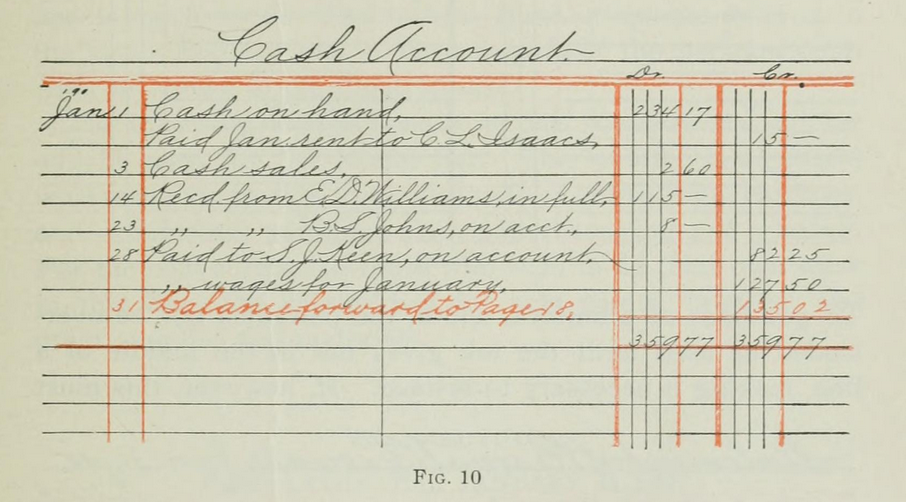 Cash Account.
Dr. Cr.
'90
Jan 1 Cash on hand, 234 17
Paid Jan. rent to C. L. Isaacs, 15 —
3 Cash sales, 2 60
14 Recd. from E. D. Williams, in full, 115 —
23 " " B. S. Johns, on acct., 8 —
28 Paid to S. J. Keen, on account, 82 25
" wages for January, 127 50
31 Balance forward to Page 18, 135 02
359 77 359 77
FIG. 10